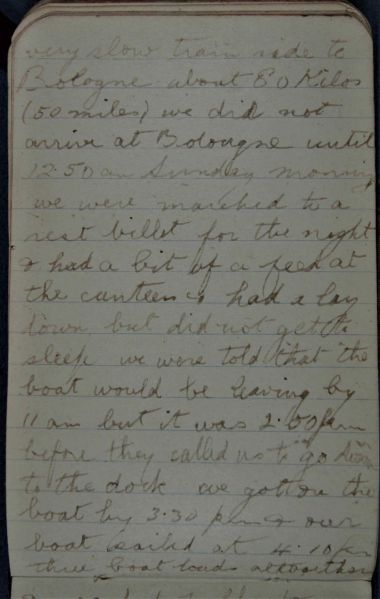 very slow train ride to
Bologne about 80 Kilos
(50 miles) we did not
arrive at Bolougne until
12.50 am Sunday morning
we were marched to a
rest billet for the night
& had a bit of a feed at
the canteen & had a lay
down but did not get to
sleep we were told that the
boat would be leaving by
11 am but it was 2.00 pm
before they called us to go down
to the dock we got on the
boat by 3.30 pm & our
boat sailed at 4.10 pm
three boat loads altogether